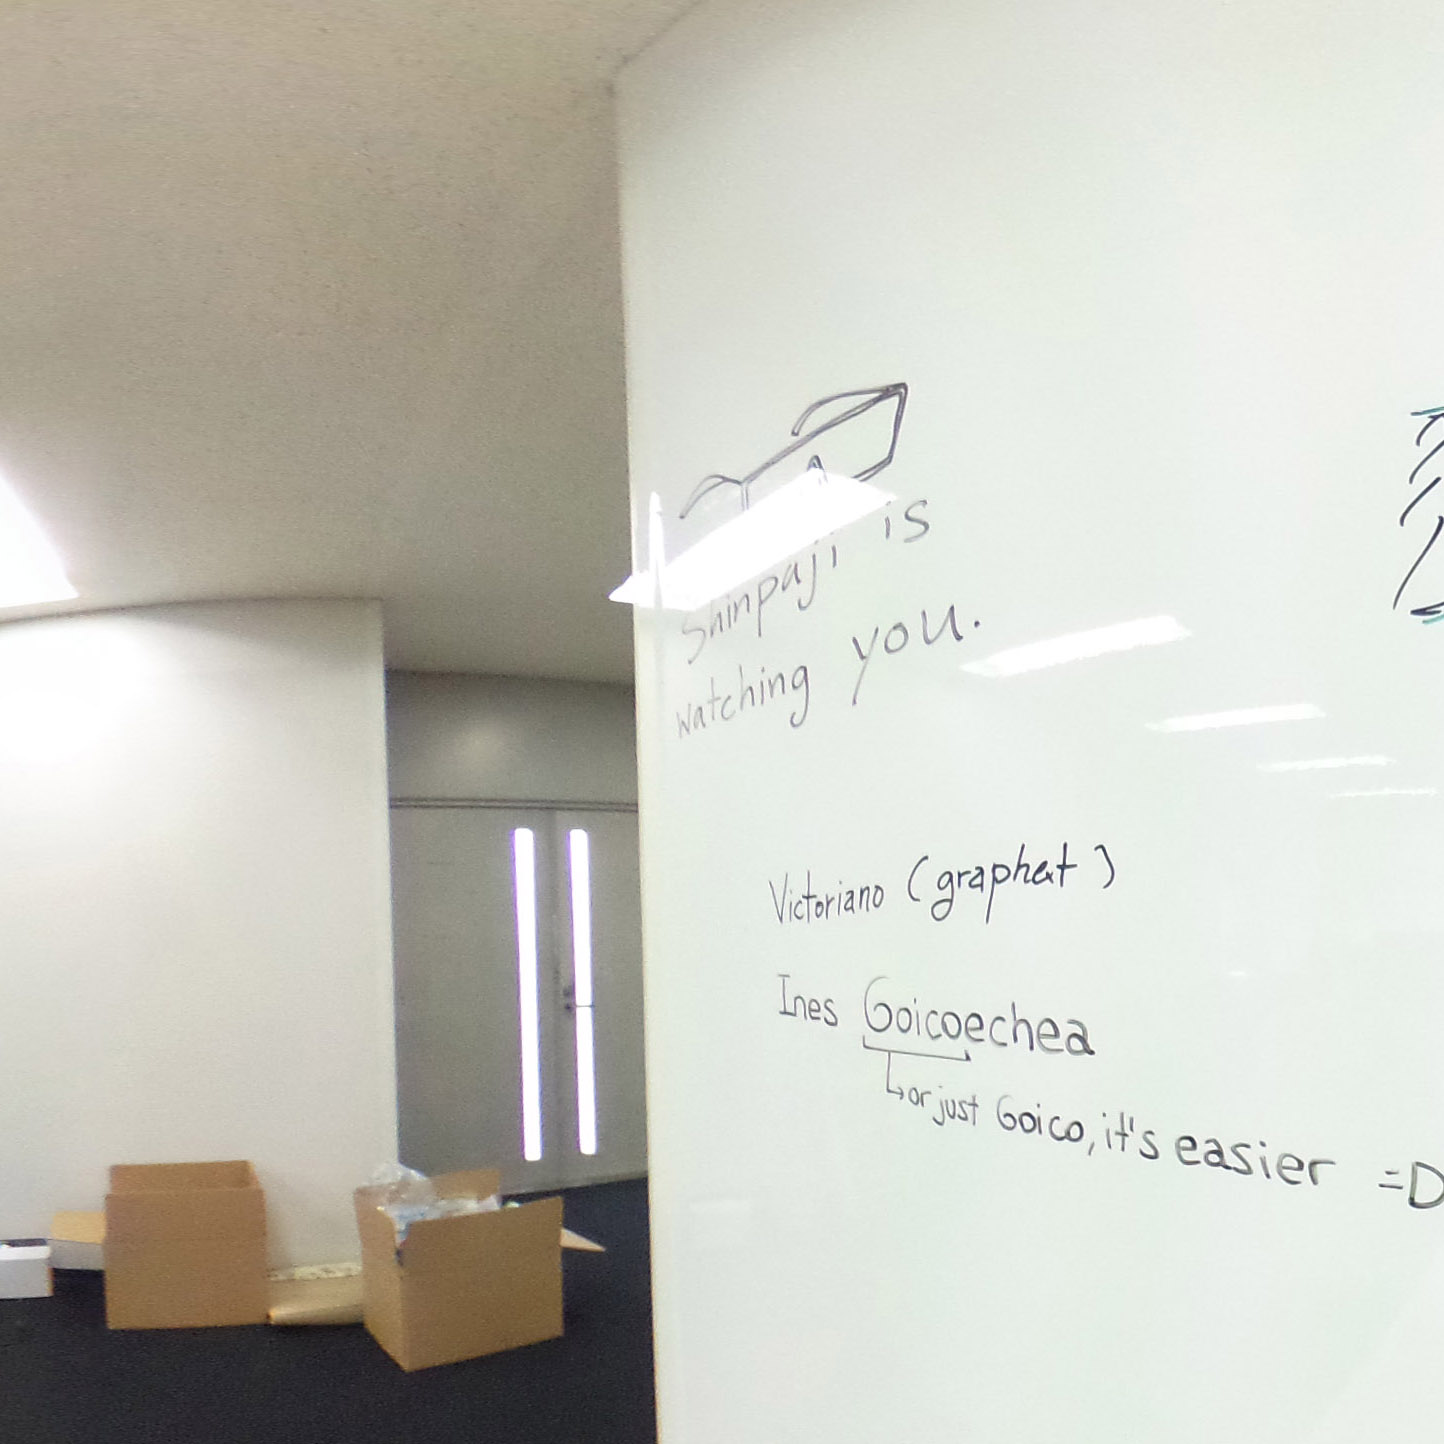 Shinpaji is
watching you.
Victoriano (graphext)
Ines Goicoechea
or just Goico, it's easier =D